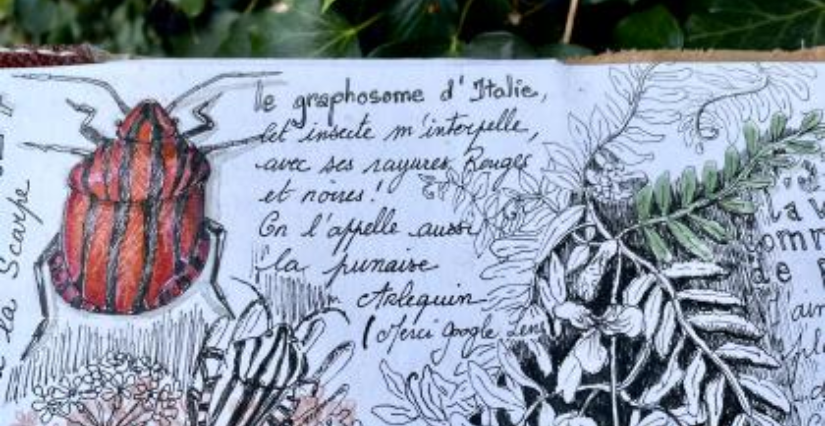 le graphosome d'Italie,
Cet insecte m'interpelle,
avec ses rayures Rouges
et noires !
On l'appelle aussi
"la punaise
Arlequin
(Merci Google Lens
la Scarpe
la
de